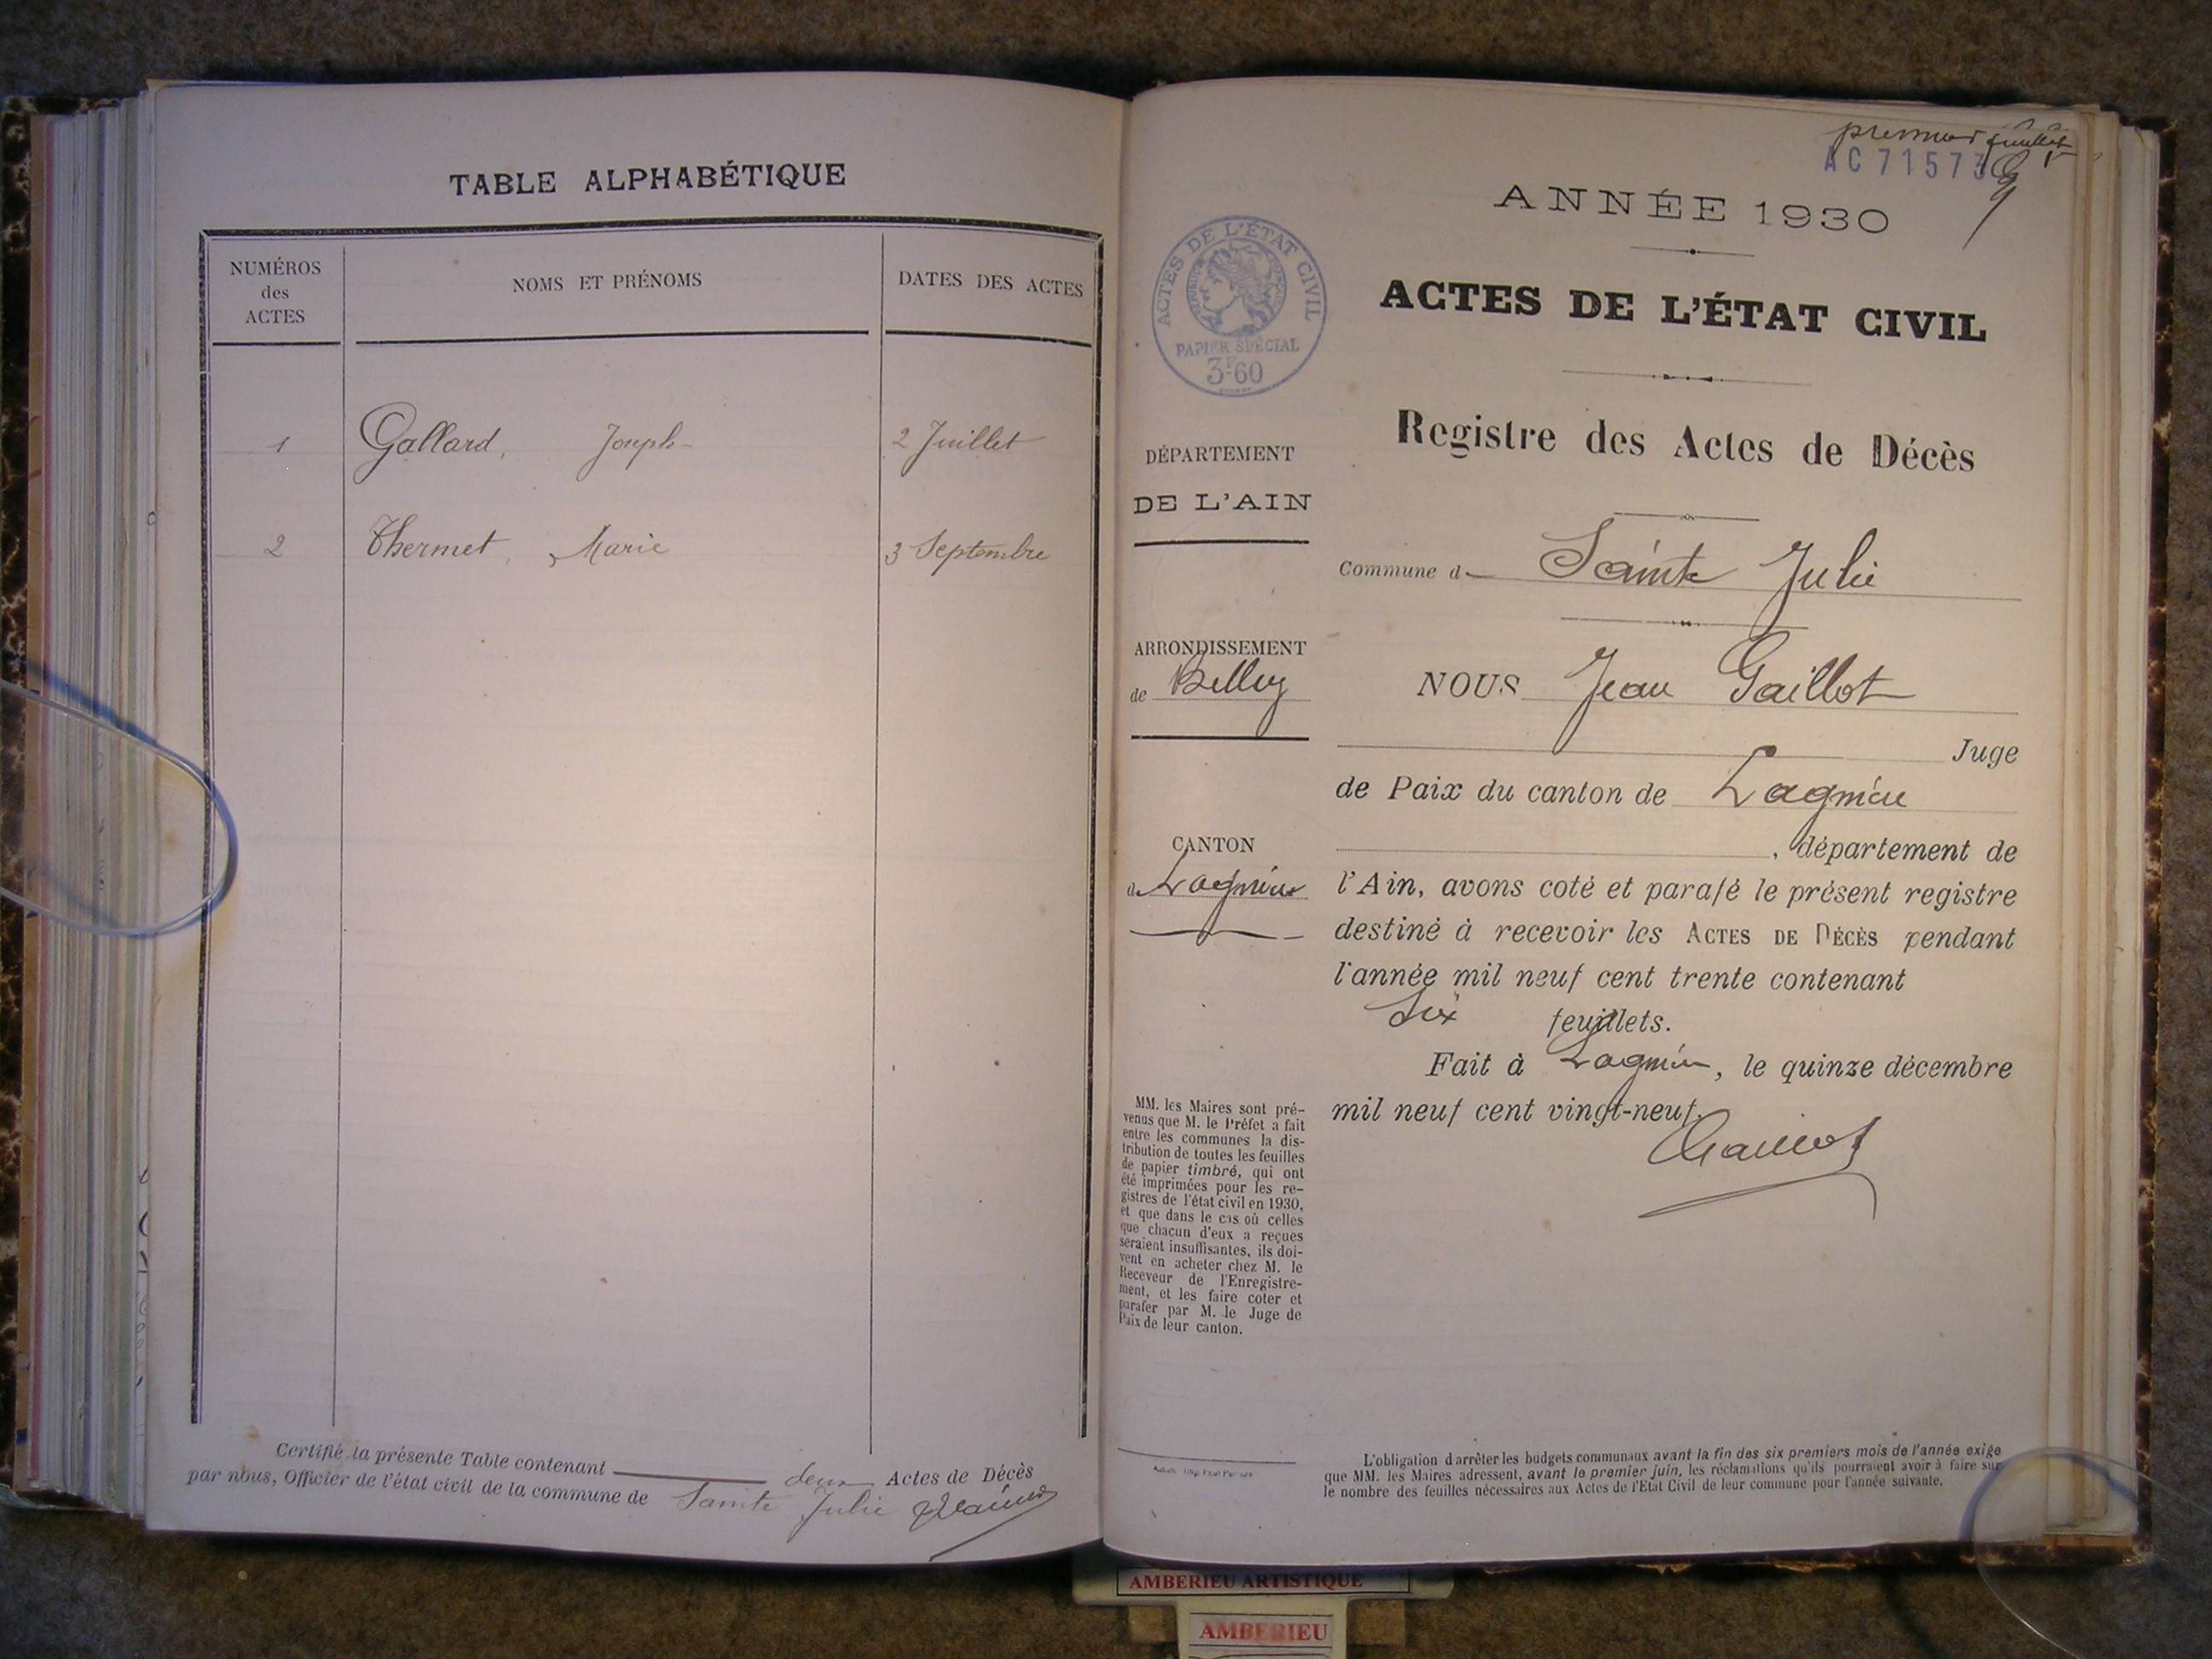 TABLE ALPHABÉTIQUE
NUMÉROS
des
ACTES
NOMS ET PRÉNOMS
DATES DES ACTES
1 Gallard, Joseph 2 Juillet
2 Thermet, Marie 3 Septembre
Certifié la présente Table contenant deux Actes de Décès
par nous, Officier de l'état civil de la commune de Sainte Julie
premier feuillet
AC 71573
ANNÉE 1930
ACTES DE L'ÉTAT CIVIL
PAPIER SPÉCIAL
3F60
ACTES DE L'ÉTAT CIVIL
Registre des Actes de Décès
DÉPARTEMENT
DE L'AIN
Commune d Sainte Julie
ARRONDISSEMENT
de Belley
NOUS Jean Gaillot
Juge
de Paix du canton de Lagnieu
CANTON
de Lagnieu
, département de
l'Ain, avons coté et parafé le présent registre
destiné à recevoir les ACTES DE DÉCÈS pendant
l'année mil neuf cent trente contenant
six feuillets.
Fait à Lagnieu, le quinze décembre
mil neuf cent vingt-neuf.
MM. les Maires sont pré-
venus que M. le Préfet a fait
entre les communes la dis-
tribution de toutes les feuilles
de papier timbré, qui ont
été imprimées pour les re-
gistres de l'état civil en 1930,
et que dans le cas où celles
que chacun d'eux a reçues
seraient insuffisantes, ils doi-
vent en acheter chez M. le
Receveur de l'Enregistre-
ment, et les faire coter et
parafer par M. le Juge de
Paix de leur canton.
L'obligation d'arrêter les budgets communaux avant la fin des six premiers mois de l'année exige
que MM. les Maires adressent, avant le premier juin, les réclamations qu'ils pourraient avoir à faire sur
le nombre des feuilles nécessaires aux Actes de l'Etat Civil de leur commune pour l'année suivante.
AMBERIEU ARTISTIQUE
AMBERIEU